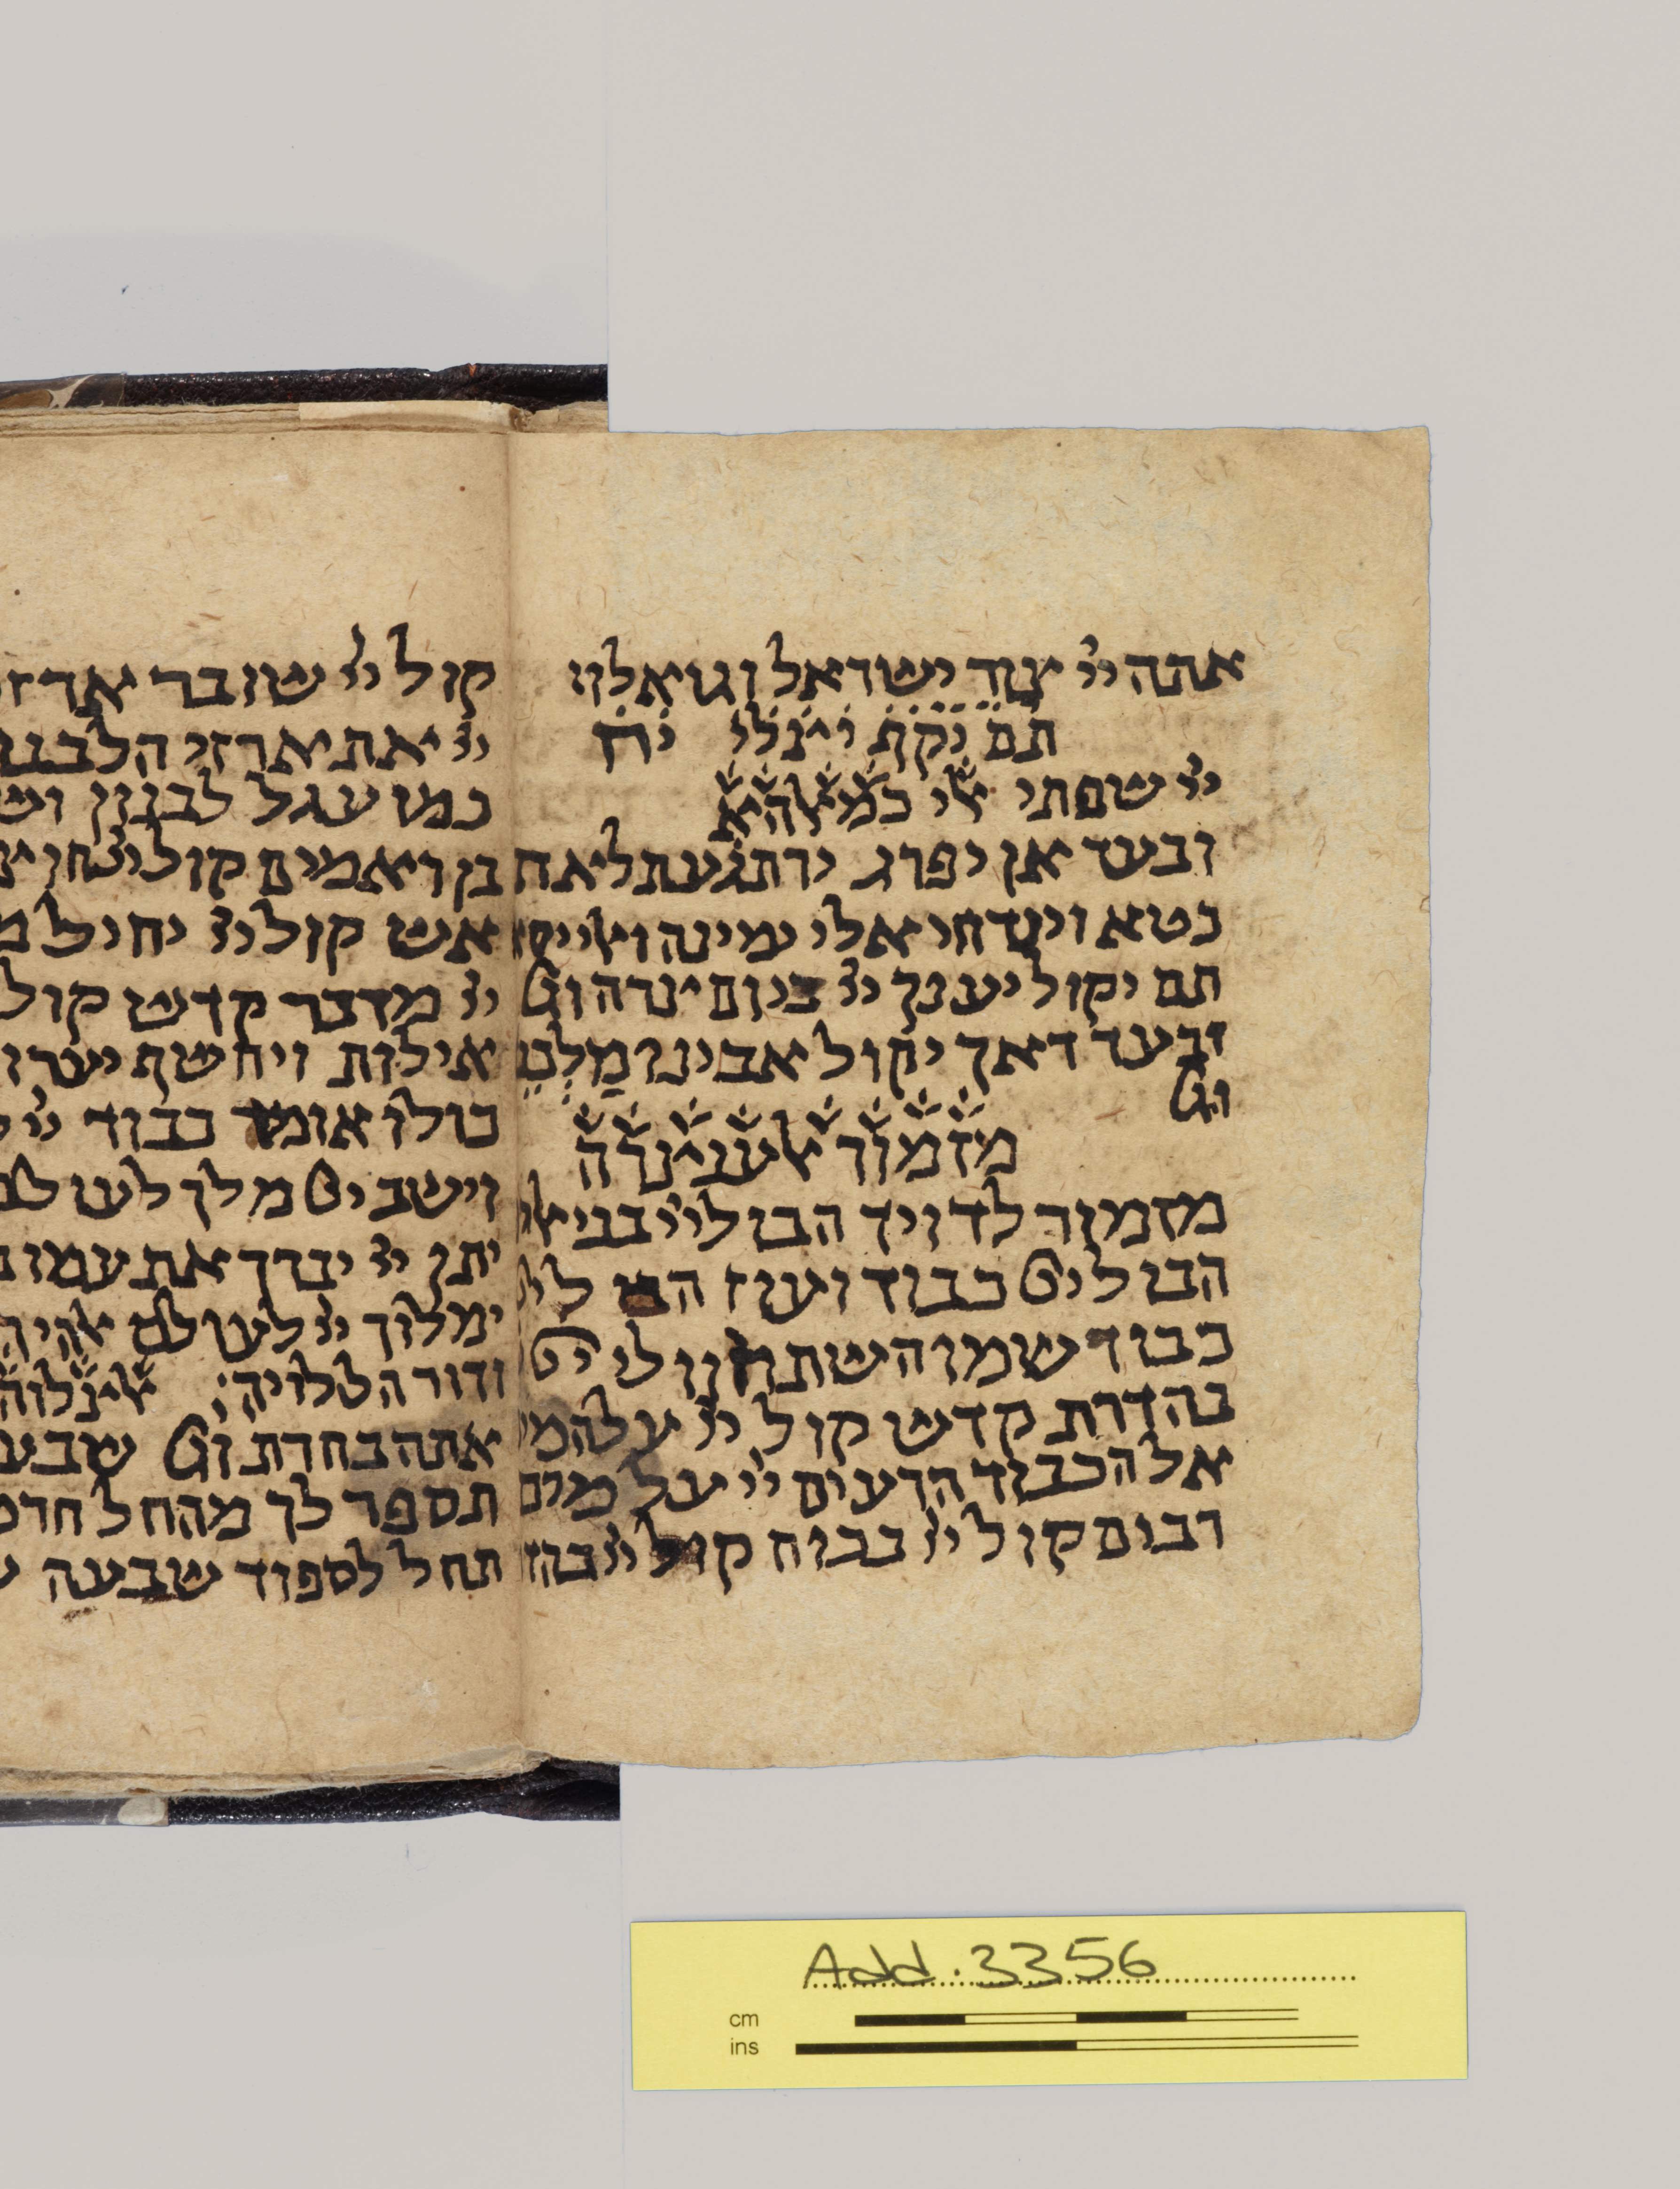 אתה יי צור ישראל וגואלו
תם יקף ויצלי יח
יי שפתי אלי כמאלהא
ובעד אן יפרג ירתגעתלאת
כטא וינדחי אלי ימינהו
תם יקול יענך יי ביום צרה וג
ובעד דאך יקול אבינו מלכ
וג
מזמור
מזמור לדויד הבו ליי בני אל
הבו ליי כבוד ועוז הבו ליי
כבוד שמו השתחוו ליי
בהדרת קדש קול יי על המי
אל הכבוד הרעים יי על מים
רבים קול יי בכוח קול יי בהד
קול יי שובר ארז
יי את ארזי הלבנון
כמו עגל לבנון וש
בן ראמים קול יי חוצ
אש קול יי יחיל מ
יי מדבר קדש קול
אילות ויחשף יערו
כולו אומר כבוד יי
וישב יי מלך לעולם
יתן יי יברך את עמו
ימלוך יי לעולם אלהיך
ודור הללויה
אתה בחרת וג שבע
תספר לך מהחל חרמ
תחל לספור שבעה ש
Add. 3356
cm
ins